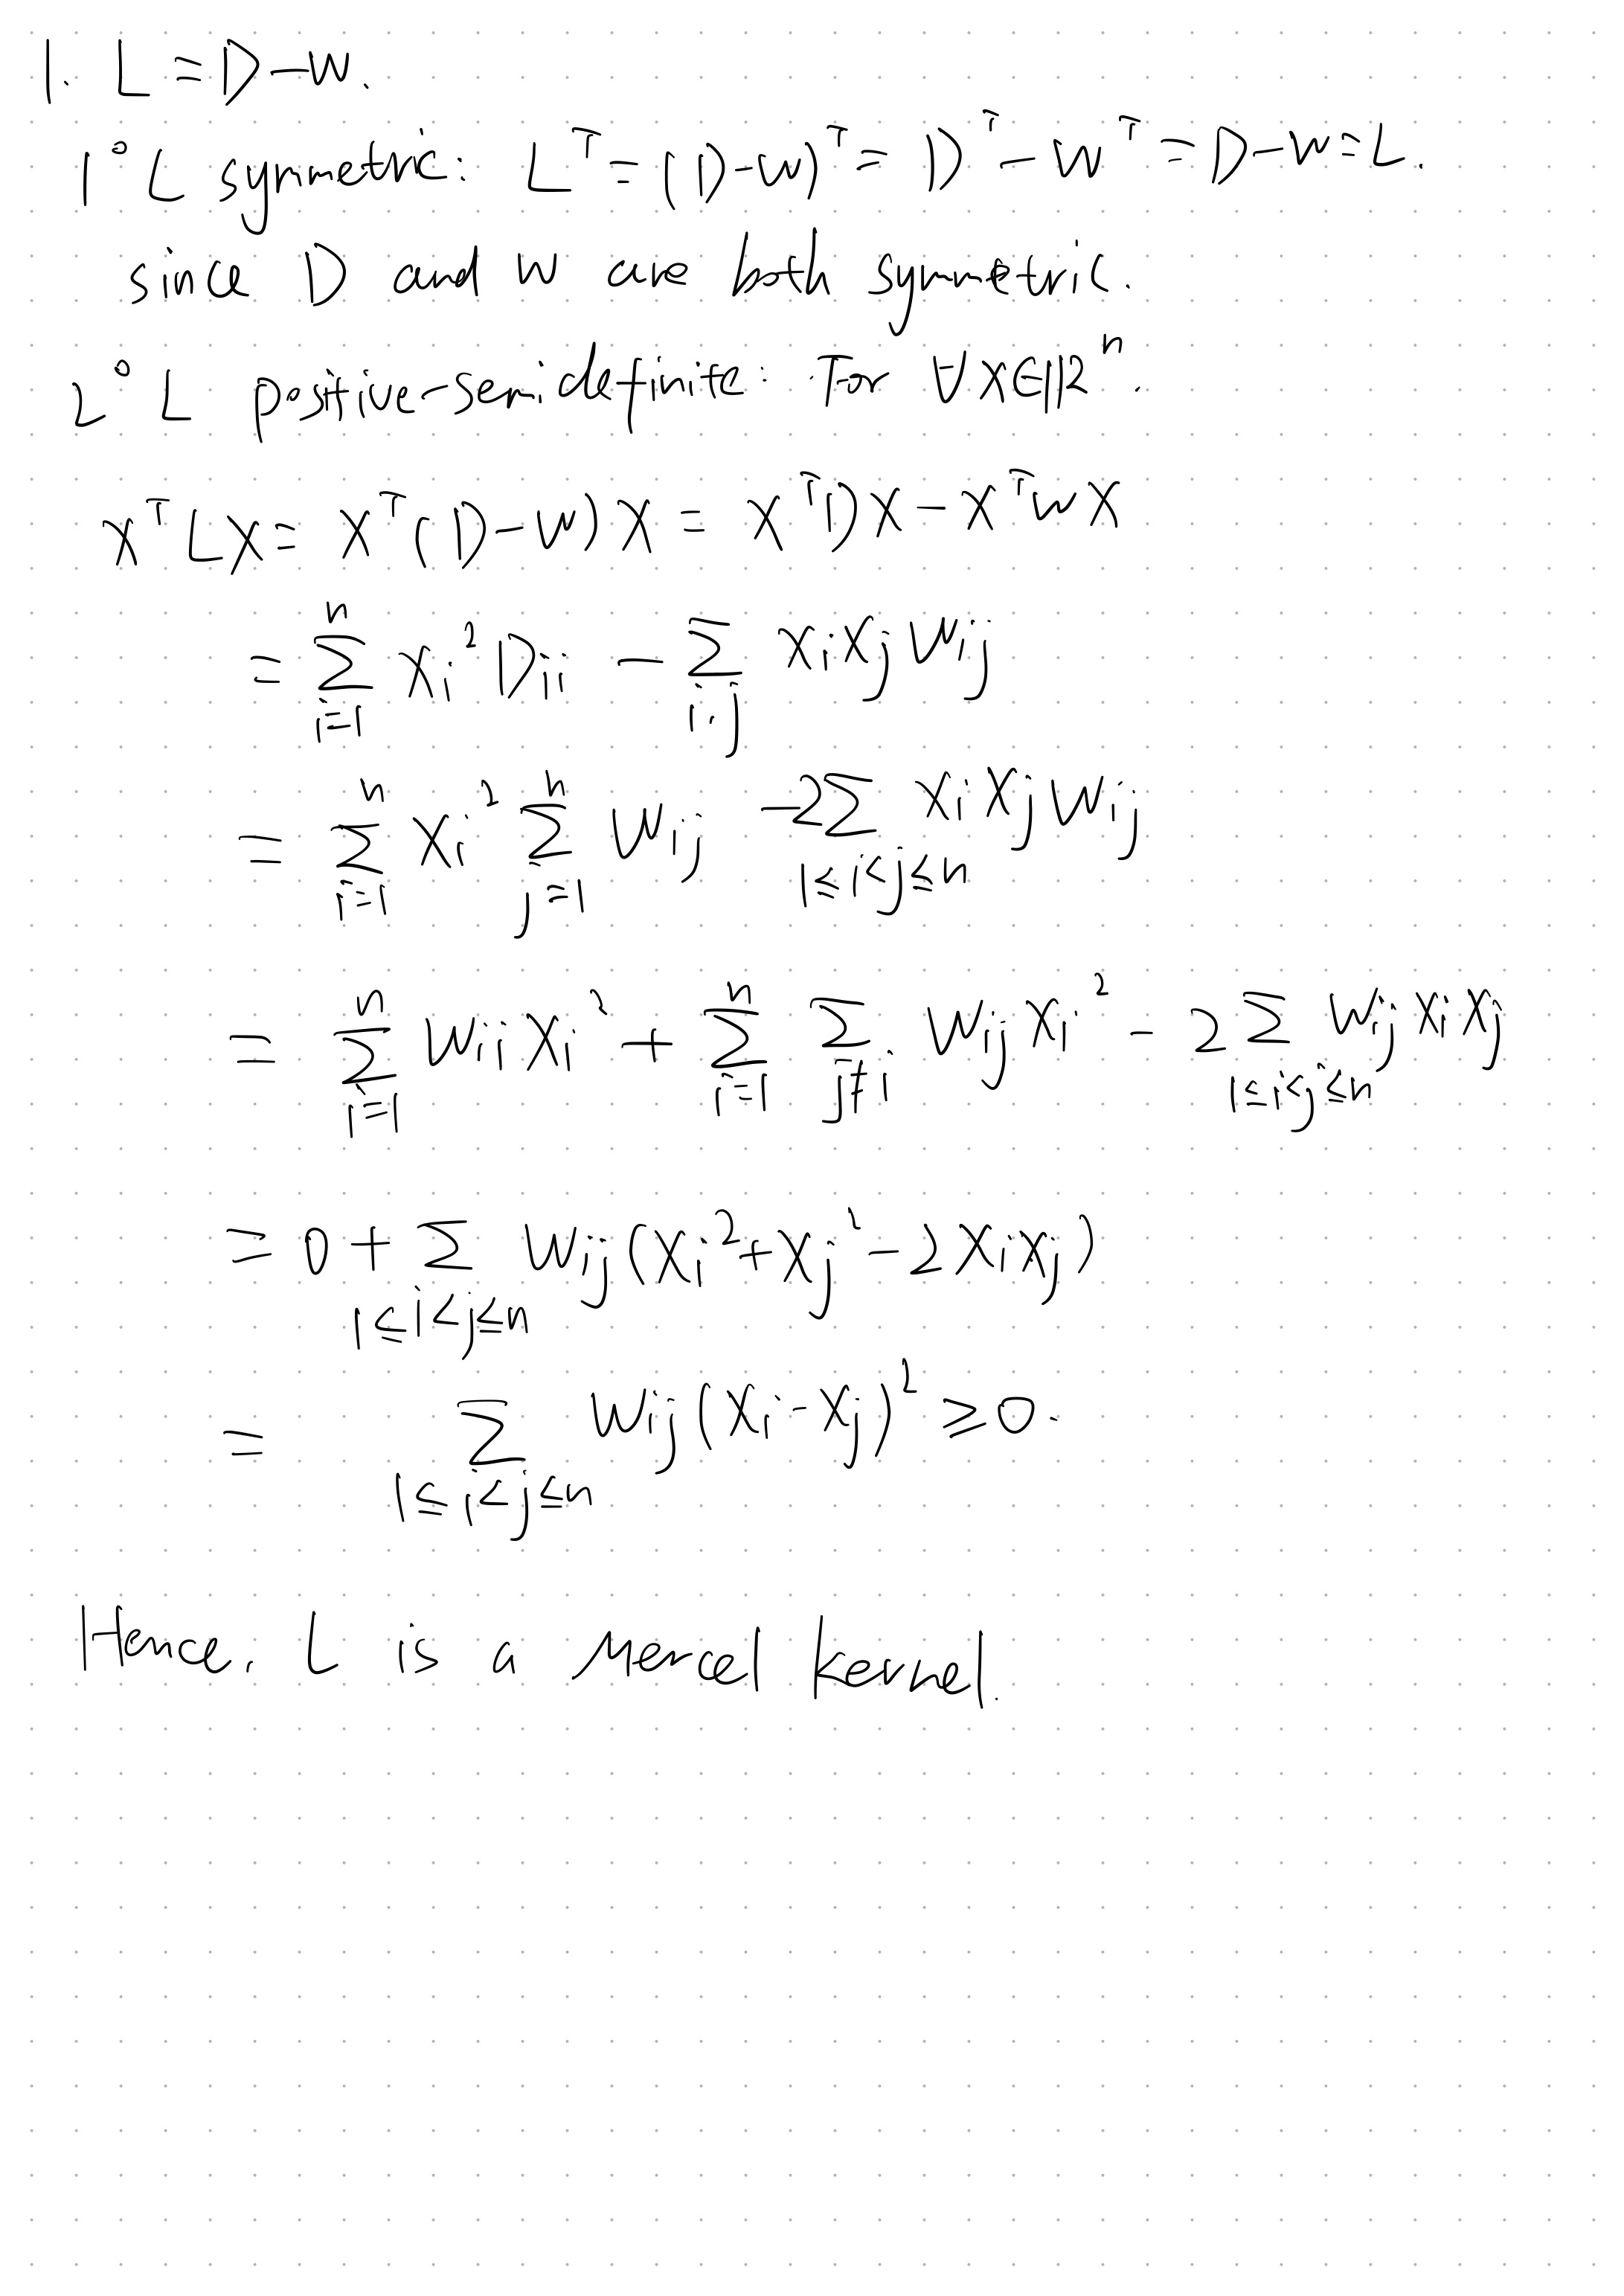 1. L = D - W.
1° L symmetric: Lᵀ = (D-W)ᵀ = Dᵀ - Wᵀ = D - W = L.
since D and W are both symmetric.
2° L positive-semidefinite: For ∀X∈ℝⁿ.
XᵀLX = Xᵀ(D-W)X = XᵀDX - XᵀWX
= ∑_{i=1}^{n} Xᵢ² Dᵢᵢ - ∑_{i,j} XᵢXⱼWᵢⱼ
= ∑_{i=1}^{n} Xᵢ² ∑_{j=1}^{n} Wᵢⱼ - 2∑_{1≤i<j≤n} XᵢXⱼWᵢⱼ
= ∑_{i=1}^{n} WᵢᵢXᵢ² + ∑_{i=1}^{n} ∑_{j≠i} WᵢⱼXᵢ² - 2∑_{1≤i<j≤n} WᵢⱼXᵢXⱼ
= 0 + ∑_{1≤i<j≤n} Wᵢⱼ(Xᵢ² + Xⱼ² - 2XᵢXⱼ)
= ∑_{1≤i<j≤n} Wᵢⱼ(Xᵢ - Xⱼ)² ≥ 0.
Hence, L is a Mercel kernel.